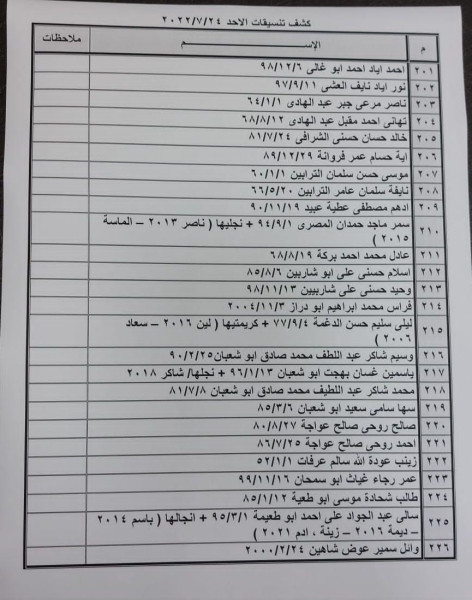 كشف تنسيقات الاحد ٢٠٢٢/٧/٢٤
م الإســـــم ملاحظات
٢٠١ احمد اياد احمد ابو غالى ٩٨/١٢/٦
٢٠٢ نور اياد نايف العشى ٩٧/٩/١١
٢٠٣ ناصر مرعى جبر عبد الهادى ٦٤/١/١
٢٠٤ تهانى احمد مقبل عبد الهادى ٦٨/٨/١٢
٢٠٥ خالد حسان حسنى الشرافى ٨١/٧/٢٤
٢٠٦ اية حسام عمر فروانة ٨٩/١٢/٢٩
٢٠٧ موسى حسن سلمان الترابين ٦٠/١/١
٢٠٨ نايفة سلمان عامر الترابين ٦٦/٥/٢٠
٢٠٩ ادهم مصطفى عطية عبيد ٩٠/١١/١٩
٢١٠ سمر ماجد حمدان المصرى ٩٤/٩/١ + نجليها ( ناصر ٢٠١٣ – الماسة
٢٠١٥ )
٢١١ عادل محمد احمد بركة ٦٨/٨/١٩
٢١٢ اسلام حسنى على ابو شاربين ٨٥/٨/٦
٢١٣ وحيد حسنى على شاربيين ٩٨/١١/١٣
٢١٤ فراس محمد ابراهيم ابو دراز ٢٠٠٤/١١/٣
٢١٥ ليلى سليم حسن الدغمة ٧٧/٩/٤ + كريمتيها ( لين ٢٠١٦ – سعاد
٢٠٠٦ )
٢١٦ وسيم شاكر عبد اللطف محمد صادق ابو شعبان٩٠/٢/٢٥
٢١٧ ياسمين غسان بهجت ابو شعبان ٩٦/١/١٣ + نجلها/ شاكر ٢٠١٨
٢١٨ محمد شاكر عبد اللطيف محمد صادق ابو شعبان ٨١/٧/٨
٢١٩ سها سامى سعيد ابو شعبان ٨٥/٣/٦
٢٢٠ صالح روحى صالح عواجة ٨٠/٨/٢٧
٢٢١ احمد روحى صالح عواجة ٨٦/٧/٢٥
٢٢٢ زينب عودة الله سالم عرفات ٥٢/١/١
٢٢٣ عمر رجاء غياث ابو سمحان ٩٩/١١/١٦
٢٢٤ طالب شحادة موسى ابو طعية ٨٥/١/١٢
٢٢٥ سالى عبد الجواد على احمد ابو طعيمة ٩٥/٣/١ + انجالها ( باسم ٢٠١٤
– ديمة ٢٠١٦ – زينة ، ادم ٢٠٢١ )
٢٢٦ وائل سمير عوض شاهين ٢٠٠٠/٢/٢٤